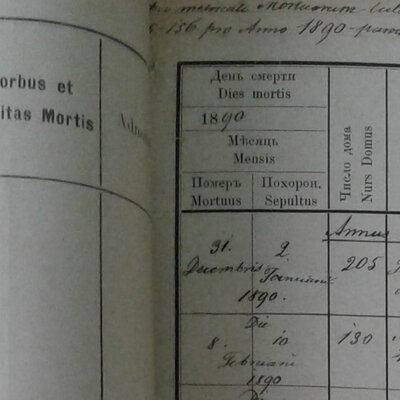 orbus et
itas Mortis
Adno
156 pro Anno 1890
День смерти
Dies mortis
1890
Мѣсяць
Mensis
Померъ
Mortuus
Похорон.
Sepultus
Число дома
Nurs Domus
Annus
31. 2. 205
Decembris Januarii
1890.
Die
8. 10 130
Februarii
1890
Die